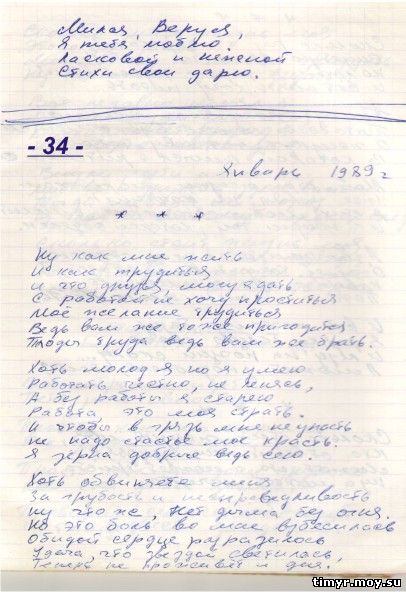 Милая, Веруся,
Я тебя люблю.
Ласковой и нежной
Стихи свои дарю.
- 34 -
Январь 1989 г
* * *
Ну как мне жить
И как трудиться
И что друзья, могу я дать
С работой не хочу проститься
Моё желание трудиться
Ведь вам же тоже пригодится
Плоды труда ведь вам же брать.
Хоть молод я но я умею
Работать честно, не ленясь,
А без работы я старею
Работа, это моя страть.
И чтобы в грязь мне не упасть
Не надо счастье мое красть.
Я зёрна добрые ведь сею.
Хоть обвиняете меня
За грубость и
Ну что же, нет дыма без огня.
Но это боль во мне взбесилась
Обидой сердце разразилось
Удача, что звездой светилась,
Теперь не проживёт и дня.
timyr.moy.su